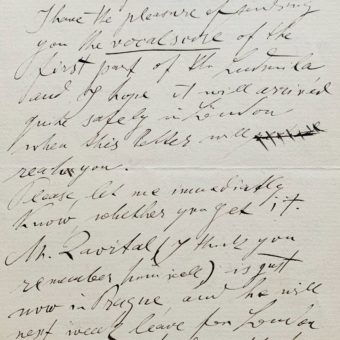 I have the pleasure of sending
you the vocalscore of the
first part of the Ludmila
and I hope it will arrived
quite safely in London
when this letter will
reach you.
Please let me immediatly
know whether you get it.
Mr. Zavrtal (I think you
remember him well) is just
now in Prague and he will
next week leave for London